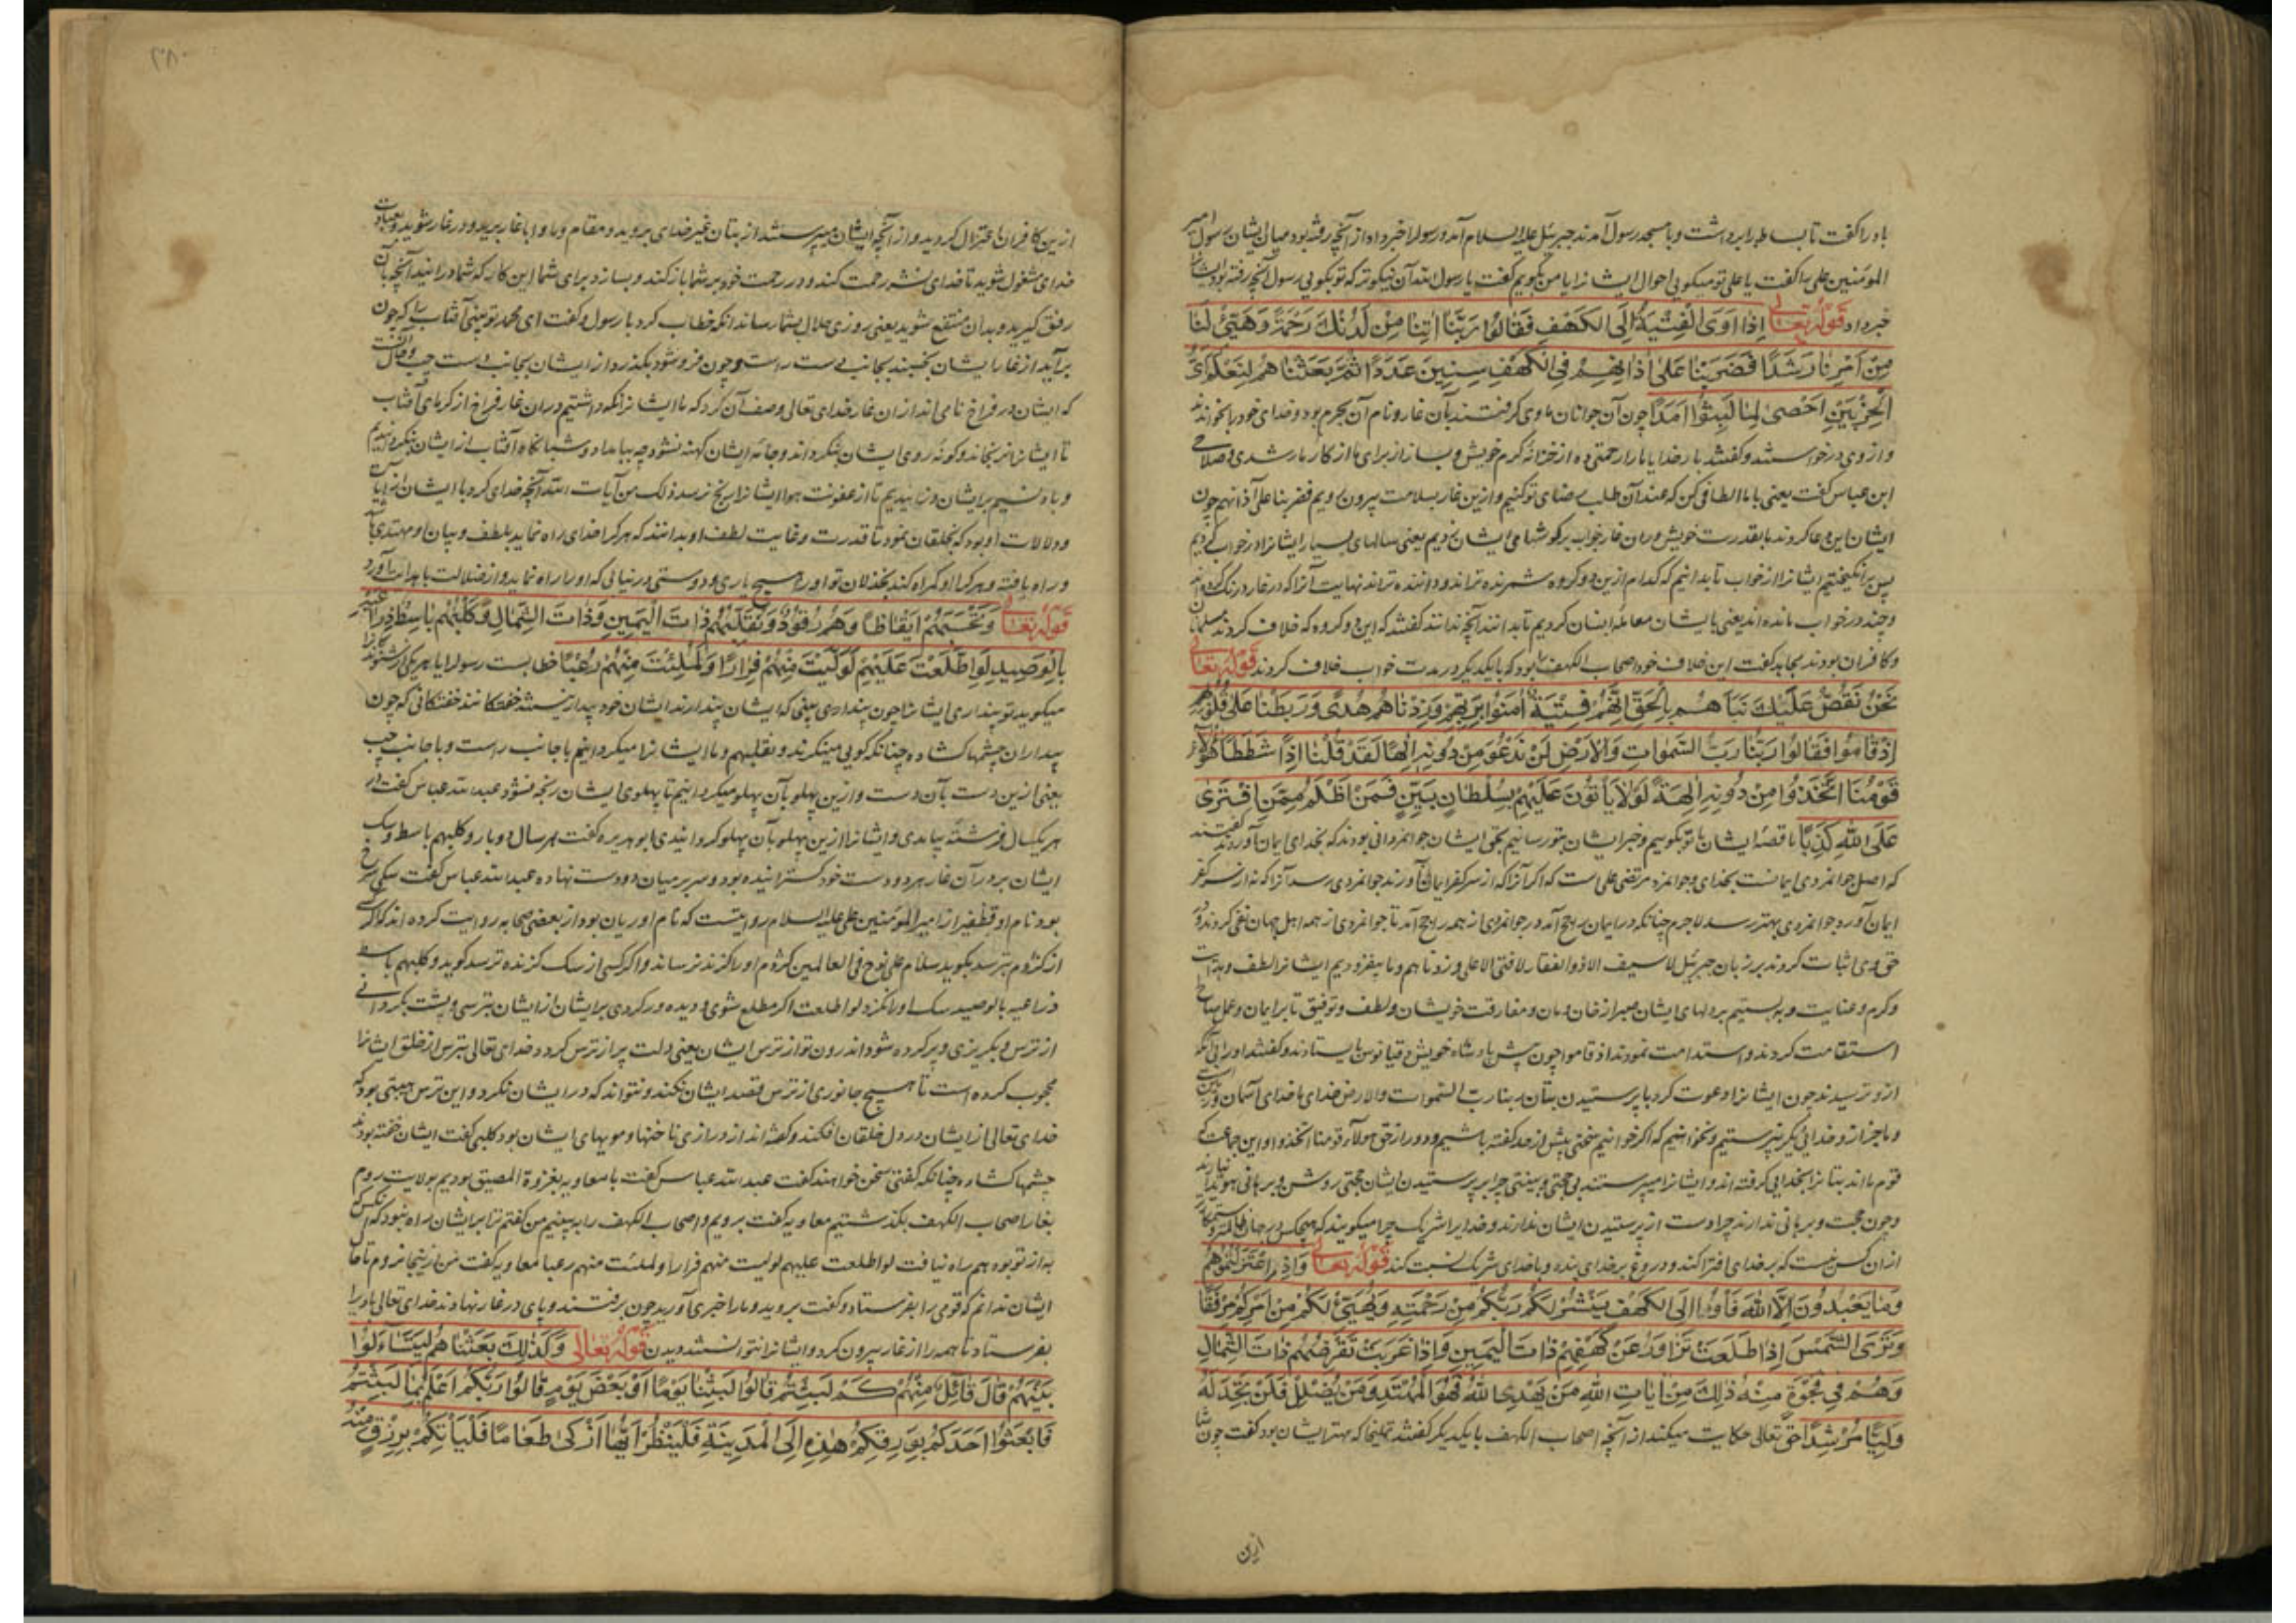 باد را گفت تا بساط برداشت و با مسجد رسول آمدند جبرئیل علیه السلام آمد و رسول را خبر داد از آنچه رفته بود میان ایشان رسول امیر
المؤمنین علی را گفت یا علی تو میگویی احوال ایشان را یا من بگویم گفت یا رسول الله آن نیکوتر که تو بگویی رسول آنچه رفته بود ایشانرا
خبر داد قوله تعالی اِذْ اَوَی الْفِتْیَةُ اِلَی الْکَهْفِ فَقَالُوا رَبَّنَا اٰتِنَا مِنْ لَدُنْکَ رَحْمَةً وَهَیِّئْ لَنَا
مِنْ اَمْرِنَا رَشَدًا فَضَرَبْنَا عَلٰی اٰذَانِهِمْ فِی الْکَهْفِ سِنِینَ عَدَدًا ثُمَّ بَعَثْنَاهُمْ لِنَعْلَمَ اَیُّ
الْحِزْبَیْنِ اَحْصٰی لِمَا لَبِثُوا اَمَدًا چون آن جوانان ماوی گرفتند بآن غار و نام آن بود و خدای خود را بخواندند
و از وی درخواستند و گفتند بار خدایا ما را رحمتی ده از خزانه کرم خویش و بساز از برای ما از کار ما رشدی و صلاحی
ابن عباس گفت یعنی با ما الطافی کن که عند آن طلب رضای تو کنیم و ازین غار بسلامت بیرون رویم فضربنا علی آذانهم چون
ایشان این دعا کردند ما بقدرت خویش در آن غار خواب بر گوشهای ایشان زدیم یعنی سالهای بسیار ایشانرا در خواب کردیم
پس برانگیختیم ایشانرا از خواب تا بدانیم که کدام ازین دو گروه شمرنده تراند و داننده تراند نهایت آنرا که در غار درنگ کردند
و چند در خواب مانده اند یعنی با ایشان معامله ایشان کردیم تا بدانند آنچه ندانند گفتند که این دو گروه که خلاف کردند مسلمانان
و کافران بودند مجاهد گفت این خلاف خود اصحاب الکهف را بود که با یکدیگر در مدت خواب خلاف کردند قوله تعالی
نَحْنُ نَقُصُّ عَلَیْکَ نَبَاَهُمْ بِالْحَقِّ اِنَّهُمْ فِتْیَةٌ اٰمَنُوا بِرَبِّهِمْ وَزِدْنَاهُمْ هُدًی وَرَبَطْنَا عَلٰی قُلُوبِهِمْ
اِذْ قَامُوا فَقَالُوا رَبُّنَا رَبُّ السَّمٰوَاتِ وَالْاَرْضِ لَنْ نَدْعُوَ مِنْ دُونِهِ اِلٰهًا لَقَدْ قُلْنَا اِذًا شَطَطًا هٰؤُلَاءِ
قَوْمُنَا اتَّخَذُوا مِنْ دُونِهِ اٰلِهَةً لَوْلَا یَاْتُونَ عَلَیْهِمْ بِسُلْطَانٍ بَیِّنٍ فَمَنْ اَظْلَمُ مِمَّنِ افْتَرٰی
عَلَی اللّٰهِ کَذِبًا ما قصه ایشان با تو بگوییم و خبر ایشان بتو رسانیم بحق ایشان جوانمردانی بودند که بخدای ایمان آوردند گفتند
که اصل جوانمردی ایمانست بخدای و جوانمرد مرتضی علی است که اگر آنرا که از سر کفر ایمان آورند جوانمردی رسد آنرا که نه از سر کفر
ایمان آورد جوانمردی بهتر رسد لاجرم چنانکه در ایمان بر همه آمد در جوانمردی از همه آمد تا جوانمردی از همه اهل جهان نفی کردند و در
حق وی اثبات کردند بر زبان جبرئیل لا سیف الا ذو الفقار لا فتی الا علی و زدناهم و ما بیفزودیم ایشانرا لطف و هدایت
و کرم و عنایت و ببستیم بر دلهای ایشان صبر از خان و مان و مفارقت خویشان و لطف و توفیق تا بر ایمان و عمل صالح
استقامت کردند و استدامت نمودند اذ قاموا چون پیش پادشاه خویش دقیانوس بایستادند و گفتند
از و نترسیدند چون ایشانرا دعوت کرد با پرستیدن بتان ربنا رب السموات والارض خدای ما خدای آسمان و زمین است
و ما جز از و خدایی دیگر نپرستیم و نخوانیم که اگر خوانیم سخنی بیش از حد گفته باشیم و دور از حق هولاء قومنا اتخذوا این جماعت که
قوم ما اند بتانرا بخدایی گرفته اند و ایشانرا میپرستند بی حجتی و بینتی چرا بر پرستیدن ایشان حجتی روشن و برهانی هویدا نیارند
و چون حجت و برهانی ندارند چرا دست از پرستیدن ایشان ندارند و خدایرا شریک چرا میگویند که هیچکس در جهان ظالمتر و ستمکارتر
از آن کس نیست که بر خدای افترا کند و دروغ بر خدای بندد و با خدای شریک نسبت کند قوله تعالی وَاِذِ اعْتَزَلْتُمُوهُمْ
وَمَا یَعْبُدُونَ اِلَّا اللّٰهَ فَاْوُوا اِلَی الْکَهْفِ یَنْشُرْ لَکُمْ رَبُّکُمْ مِنْ رَحْمَتِهِ وَیُهَیِّئْ لَکُمْ مِنْ اَمْرِکُمْ مِرْفَقًا
وَتَرَی الشَّمْسَ اِذَا طَلَعَتْ تَزَاوَرُ عَنْ کَهْفِهِمْ ذَاتَ الْیَمِینِ وَاِذَا غَرَبَتْ تَقْرِضُهُمْ ذَاتَ الشِّمَالِ
وَهُمْ فِی فَجْوَةٍ مِنْهُ ذٰلِکَ مِنْ اٰیَاتِ اللّٰهِ مَنْ یَهْدِی اللّٰهُ فَهُوَ الْمُهْتَدِ وَمَنْ یُضْلِلْ فَلَنْ تَجِدَ لَهُ
وَلِیًّا مُرْشِدًا حق تعالی حکایت میکند از آنچه اصحاب الکهف با یکدیگر گفتند تملیخا که مهتر ایشان بود گفت چون شما
ازین
۲۰۸
ازین کافران اعتزال کردید و از آنچه ایشان میپرستند از بتان غیر خدای بروید و مقام و ماوا با غار برید و در غار شوید و بعبادت
خدای مشغول شوید تا خدای نشر رحمت کند و در رحمت خود بر شما باز کند و بسازد برای شما این کار که شما در آنید آنچه بآن
رفق گیرید و بدان منتفع شوید یعنی روزی حلال بشما رساند آنکه خطاب کرد با رسول و گفت ای محمد تو بینی آفتاب را که چون
برآید از غار ایشان بجنبد بجانب دست راست و چون فرو شود بگذرد از ایشان بجانب دست چپ
که ایشان در فراخ نایی اند از آن غار خدای تعالی وصف آن کرد که ما ایشانرا نگه داشتیم در آن غار فراخ از گرمای آفتاب
تا ایشانرا نرنجاند و گونه روی ایشان بنگرداند و جامه ایشان کهنه نشود چه ببامداد و شبانگاه آفتاب از ایشان
و باد نسیم بر ایشان وزانیدیم تا از عفونت هوا ایشانرا رنج نرسد ذلک من آیات الله آنچه خدای کرد با ایشان از آیات
و دلالات او بود که بخلقان نمود تا قدرت و غایت لطف او بدانند که هر کرا خدای راه نماید بلطف و بیان او مهتدی باشد
و راه یافته و هر کرا او گمراه کند بخذلان تو او را هیچ یاری و دوستی در نیابی که او را راه نماید و از ضلالت با هدایت آورد
قوله تعالی وَتَحْسَبُهُمْ اَیْقَاظًا وَهُمْ رُقُودٌ وَنُقَلِّبُهُمْ ذَاتَ الْیَمِینِ وَذَاتَ الشِّمَالِ وَکَلْبُهُمْ بَاسِطٌ ذِرَاعَیْهِ
بِالْوَصِیدِ لَوِ اطَّلَعْتَ عَلَیْهِمْ لَوَلَّیْتَ مِنْهُمْ فِرَارًا وَلَمُلِئْتَ مِنْهُمْ رُعْبًا خطابست رسول را یا هر یکی از
میگوید تو پنداری ایشانرا چون بینی که ایشان بیدارند ایشان خود بیدار نیستند خفتگانند خفتگانی که چون
بیداران چشمها گشاده چنانکه گویی مینگرند و نقلبهم و ما ایشانرا میگردانیم با جانب راست و با جانب چپ
یعنی ازین دست بآن دست و ازین پهلو بآن پهلو میگردانیم تا پهلوی ایشان رنجه نشود عبدالله عباس گفت در
هر یکسال فرشته بیامدی و ایشانرا ازین پهلو بآن پهلو گردانیدی ابو هریره گفت هر سال دو بار و کلبهم باسط و سگ
ایشان بر در آن غار هر دو دست خود گسترانیده بود و سر بر میان دو دست نهاده عبدالله عباس گفت سگی سرخ
بود نام او قطفیر از امیر المؤمنین علی علیه السلام روایتست که نام او ریان بود از بعضی صحابه روایت کرده اند که اگر کسی
از کژدم بترسد بگوید سلام علی نوح فی العالمین کژدم او را گزند نرساند و اگر کسی از سگ گزنده ترسد گوید و کلبهم باسط
ذراعیه بالوصید سگ او را نگزد لو اطلعت اگر مطلع شوی و دیده ور گردی بر ایشان از ایشان بترسی و پشت بگردانی
از ترس و بگریزی و پر کرده شود اندرون تو از ترس ایشان یعنی دلت پر از ترس گردد خدای تعالی بترس از خلق ایشانرا
محجوب کرده است تا هیچ جانوری از ترس قصد ایشان نکند و نتواند که در ایشان نگرد و این ترس هیبتی بود که
خدای تعالی از ایشان در دل خلقان افکند و گفته اند از درازی ناخنها و مویهای ایشان بود کلبی گفت ایشان خفته بودند
چشمها گشاده چنانکه گفتی سخن خواهند گفت عبدالله عباس گفت با معاویه بغزوة المضیق بودیم بولایت روم
بغار اصحاب الکهف بگذشتیم معاویه گفت برویم و اصحاب الکهف را ببینیم من گفتم ترا بر ایشان راه نبود که آنکس
به از تو بود هم راه نیافت لو اطلعت علیهم لولیت منهم فرارا و لملئت منهم رعبا معاویه گفت من ازینجا نروم تا حال
ایشان ندانم که قومی را بفرستاد و گفت بروید و ما را خبری آورید چون برفتند و پای در غار نهادند خدای تعالی باد را
بفرستاد تا همه را از غار بیرون کرد و ایشانرا نتوانستند دیدن قوله تعالی وَکَذٰلِکَ بَعَثْنَاهُمْ لِیَتَسَاءَلُوا
بَیْنَهُمْ قَالَ قَائِلٌ مِنْهُمْ کَمْ لَبِثْتُمْ قَالُوا لَبِثْنَا یَوْمًا اَوْ بَعْضَ یَوْمٍ قَالُوا رَبُّکُمْ اَعْلَمُ بِمَا لَبِثْتُمْ
فَابْعَثُوا اَحَدَکُمْ بِوَرِقِکُمْ هٰذِهِ اِلَی الْمَدِینَةِ فَلْیَنْظُرْ اَیُّهَا اَزْکٰی طَعَامًا فَلْیَاْتِکُمْ بِرِزْقٍ مِنْهُ